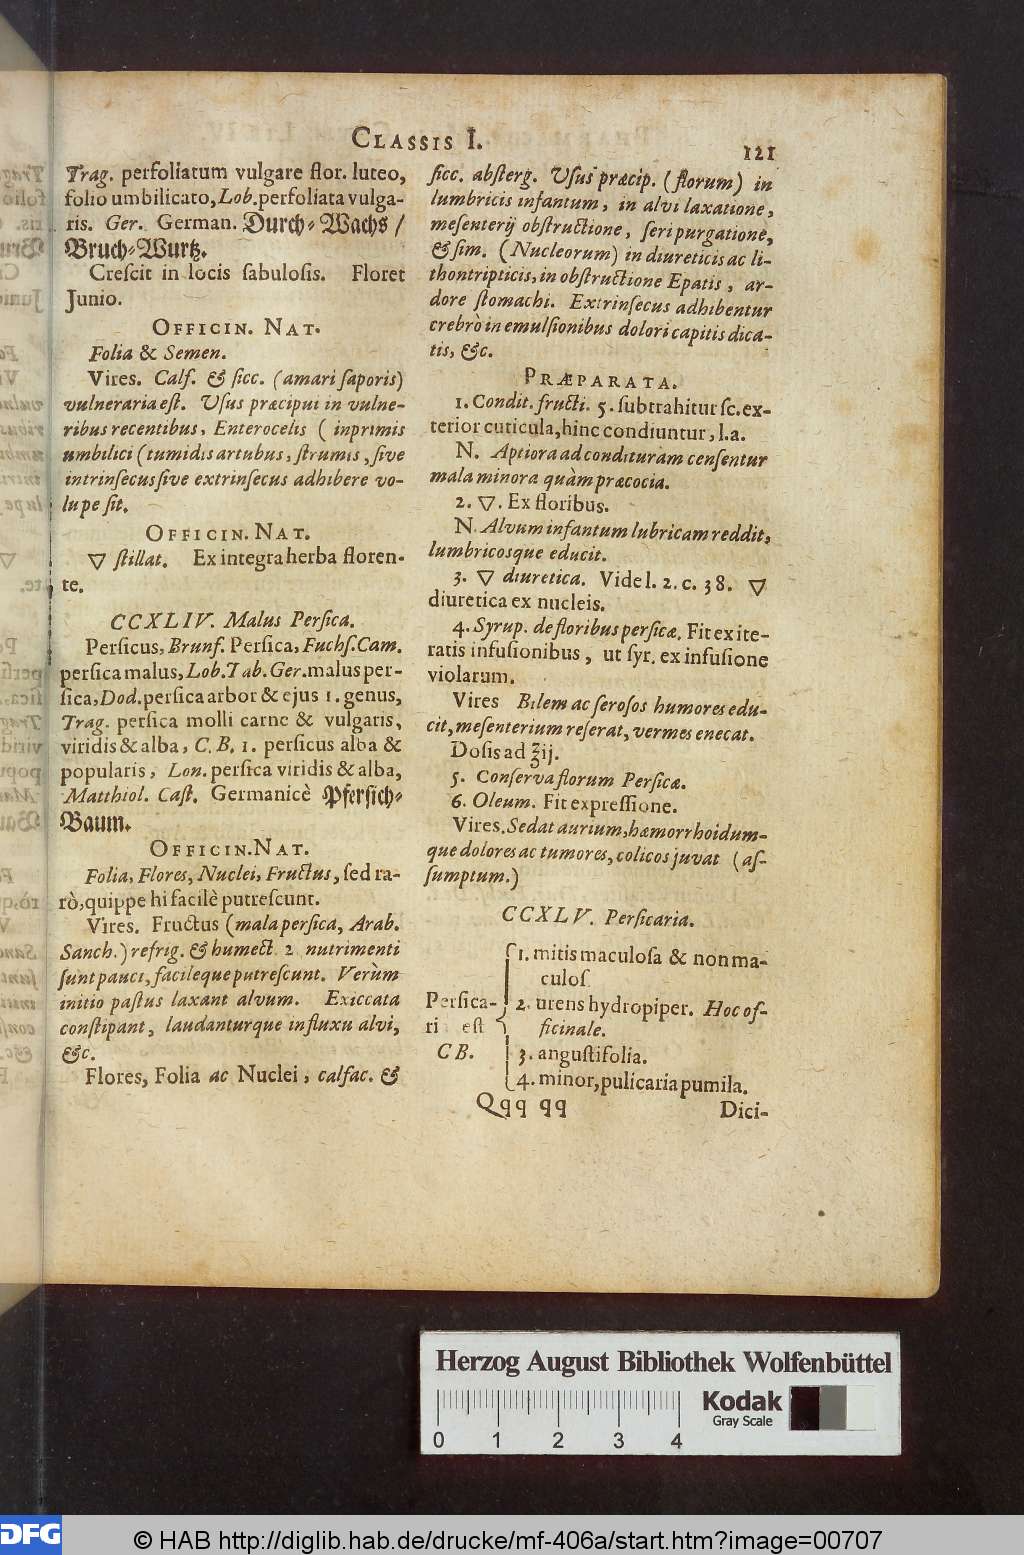 CLASSIS I.
121
Trag. perfoliatum vulgare flor. luteo,
folio umbilicato, Lob. perfoliata vulga-
ris. Ger. German. Durch-Wachs /
Bruch-Wurtz.
Creſcit in locis ſabuloſis. Floret
Junio.
OFFICIN. NAT.
Folia & Semen.
Vires. Calf. & ſicc. (amari ſaporis)
vulneraria eſt. Uſus præcipui in vulne-
ribus recentibus, Enterocelis ( inprimis
umbilici (tumidis artubus, ſtrumis, ſive
intrinſecus ſive extrinſecus adhibere vo-
lupe ſit.
OFFICIN. NAT.
▽ ſtillat. Ex integra herba floren-
te.
CCXLIV. Malus Perſica.
Perſicus, Brunf. Perſica, Fuchſ. Cam.
perſica malus, Lob. Tab. Ger. malus per-
ſica, Dod. perſica arbor & ejus 1. genus,
Trag. perſica molli carne & vulgaris,
viridis & alba, C. B. 1. perſicus alba &
popularis, Lon. perſica viridis & alba,
Matthiol. Caſt. Germanicè Pferſich-
Baum.
OFFICIN. NAT.
Folia, Flores, Nuclei, Fructus, ſed ra-
rò, quippe hi facilè putreſcunt.
Vires. Fructus (mala perſica, Arab.
Sanch.) refrig. & humect. 2 nutrimenti
ſunt pauci, facileque putreſcunt. Verùm
initio paſtus laxant alvum. Exiccata
conſtipant, laudanturque influxu alvi,
&c.
Flores, Folia ac Nuclei, calfac. &
ſicc. abſterg. Uſus præcip. (florum) in
lumbricis infantum, in alvi laxatione,
meſenterij obſtructione, ſeri purgatione,
& ſim. (Nucleorum) in diureticis ac li-
thontripticis, in obſtructione Epatis, ar-
dore ſtomachi. Extrinſecus adhibentur
crebrò in emulſionibus dolori capitis dica-
tis, &c.
PRÆPARATA.
1. Condit. fructi. 5. ſubtrahitur ſc. ex-
terior cuticula, hinc condiuntur, l. a.
N. Aptiora ad condituram cenſentur
mala minora quàm præcocia.
2. ▽. Ex floribus.
N. Alvum infantum lubricam reddit,
lumbricosque educit.
3. ▽ diuretica. Vide l. 2. c. 38. ▽
diuretica ex nucleis.
4. Syrup. de floribus perſicæ. Fit ex ite-
ratis infuſionibus, ut ſyr. ex infuſione
violarum.
Vires Bilem ac ſeroſos humores edu-
cit, meſenterium reſerat, vermes enecat.
Doſis ad ℥ij.
5. Conſerva florum Perſicæ.
6. Oleum. Fit expreſſione.
Vires. Sedat aurium, hæmorrhoidum-
que dolores ac tumores, colicos juvat (aſ-
ſumptum.)
CCXLV. Perſicaria.
1. mitis maculoſa & non ma-
culoſ
Perſica- 2. urens hydropiper. Hoc of-
ri eſt ficinale.
C B. 3. anguſtifolia.
4. minor, pulicaria pumila.
Qqq qq Dici-
Herzog August Bibliothek Wolfenbüttel
Kodak
Gray Scale
0 1 2 3 4
DFG
© HAB http://diglib.hab.de/drucke/mf-406a/start.htm?image=00707